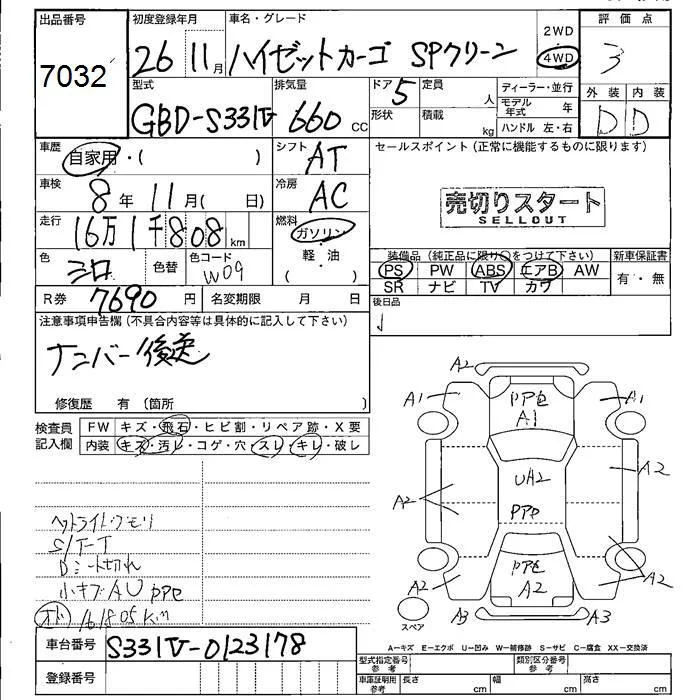 出品番号 初度登録年月 車名・グレード 2WD 評価点
7032 26 11月 ハイゼットカーゴ SPクリーン 4WD 3
型式 排気量 ドア 定員 ディーラー・並行 外装 内装
GBD-S331V 660 CC 5 人 モデル年式 年 D D
形状 積載 kg ハンドル 左・右
車歴 自家用・( ) シフト AT セールスポイント(正常に機能するものに限ります)
車検 8年 11月( 日) 冷房 AC
売切りスタート
SELLOUT
走行 16万1千808km 燃料 ガソリン
軽・油
( )
色 シロ 色替 色コード W09
装備品(純正品に限り○をつけて下さい) 新車保証書
PS PW ABS エアB AW 有・無
SR ナビ TV カワ
R券 7690円 名変期限 月 日 後日品
注意事項申告欄(不具合内容等は具体的に記入して下さい)
ナンバー後送
修復歴 有(箇所 )
検査員記入欄 FW キズ・飛石・ヒビ割・リペア跡・X要
内装 キズ・汚レ・コゲ・穴・スレ・キレ・破レ
A2
A1 PPe A1 A1
A2 UA2 A2
PPe
PPe A2
A2 A2
A3 A3
スペア
ヘットライトクモリ
S/T-T
Dシート切れ
小キズAU PPe
オド 161805Km
A-キズ E-エクボ U-凹み W-補修跡 S-サビ C-腐食 XX-交換済
車台番号 S331V-0123178
型式指定番号 参考 類別区分番号 参考
登録番号 車庫証明用 参考 長さ cm 幅 cm 高さ cm